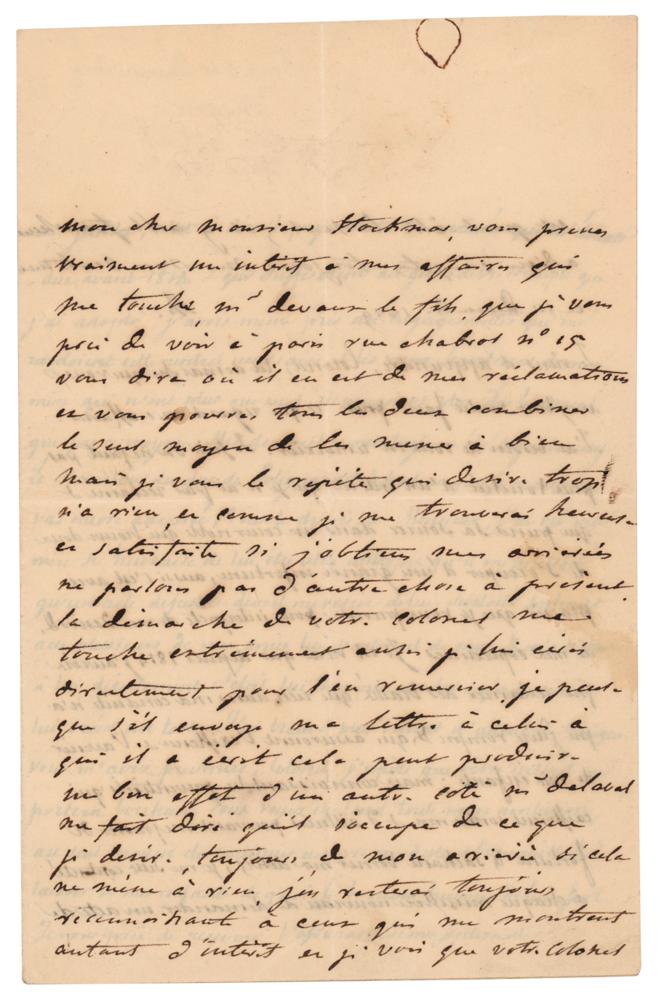 mon cher monsieur Stockmar, vous prenes
vraiment un intérêt à mes affaires qui
me touche, mr devaux le fils, que je vous
prie de voir à paris rue chabrol no 15
vous dira où il en est de mes réclamations
et vous pourres tous les deux combiner
le seul moyen de les mener à bien
mais je vous le répète qui desire trop
n'a rien, et comme je me trouverai heureuse
et satisfaite si j'obtiens mes arriérés
ne parlons pas d'autre chose à présent
la démarche de votre colonel me
touche extrêmement aussi je lui écris
directement pour l'en remercier, je pense
que s'il envoye ma lettre à celui à
qui il a écrit cela peut produire
un bon effet d'un autre côté mr delaval
me fait dire qu'il s'occupe de ce que
je désire. toujours de mon arriéré si cela
ne mène à rien, j'en resterai toujours
reconnoissante à ceux qui me montrent
autant d'intérêt et je vois que votre colonel